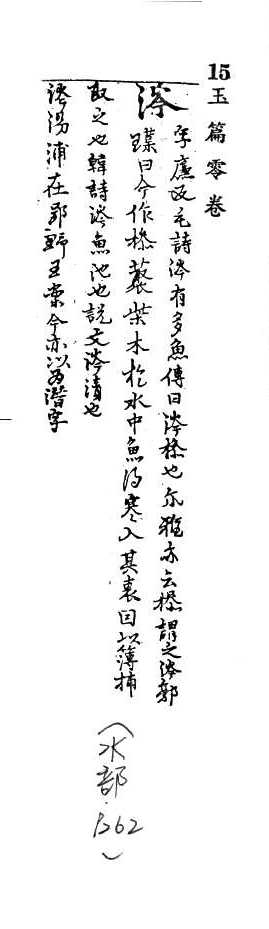 15
玉篇零卷
涔
字廉反毛詩涔有多魚傳曰涔槮也尒雅亦云槮謂之涔郭
璞曰今作槮藂柴木於水中魚得寒入其裏因以簿捕
取之也韓詩涔魚池也說文涔漬也
涔陽浦在郢野王案今亦以為潛字
(水部·p362)